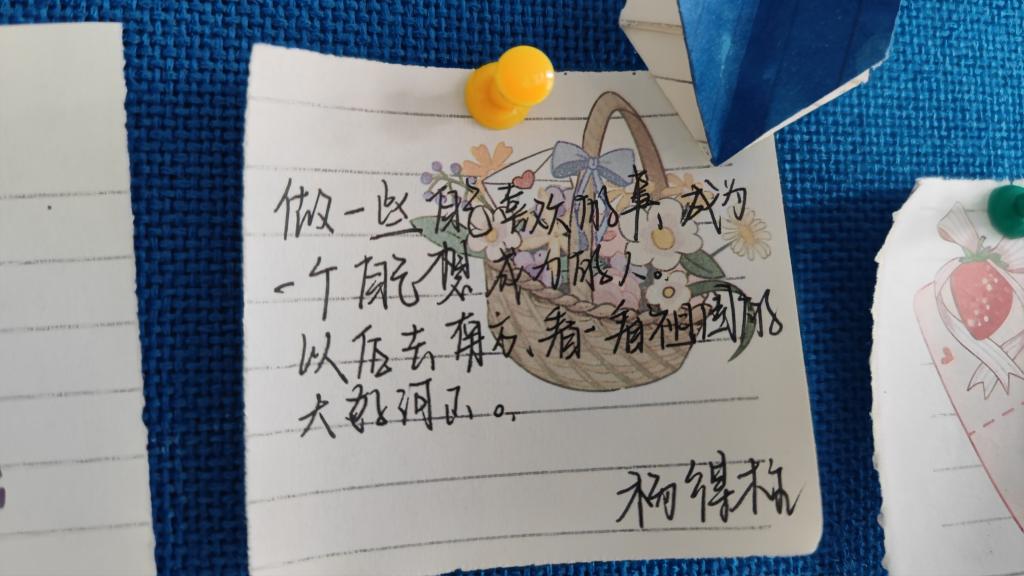 做一些自己喜欢的事,成为
一个自己想成为的人。
以后去南方,看一看祖国的
大好河山。
杨得柱